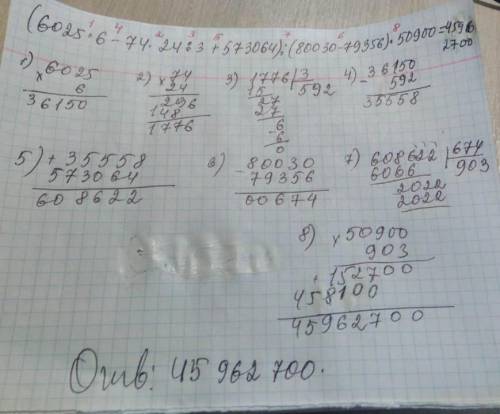 (6025·6-74·24:3+573064):(80030-79356)·50900=4596
2700
1 4 2 3 5 7 6 8
1) ×6025
6
36150
2) ×74
24
296
148
1776
3) 1776 | 3
15 592
27
27
6
6
0
4) -36150
592
35558
5) +35558
573064
608622
6) -80030
79356
00674
7) 608622 | 674
6066 903
2022
2022
8) ×50900
903
152700
458100
45962700
Отв: 45 962 700.